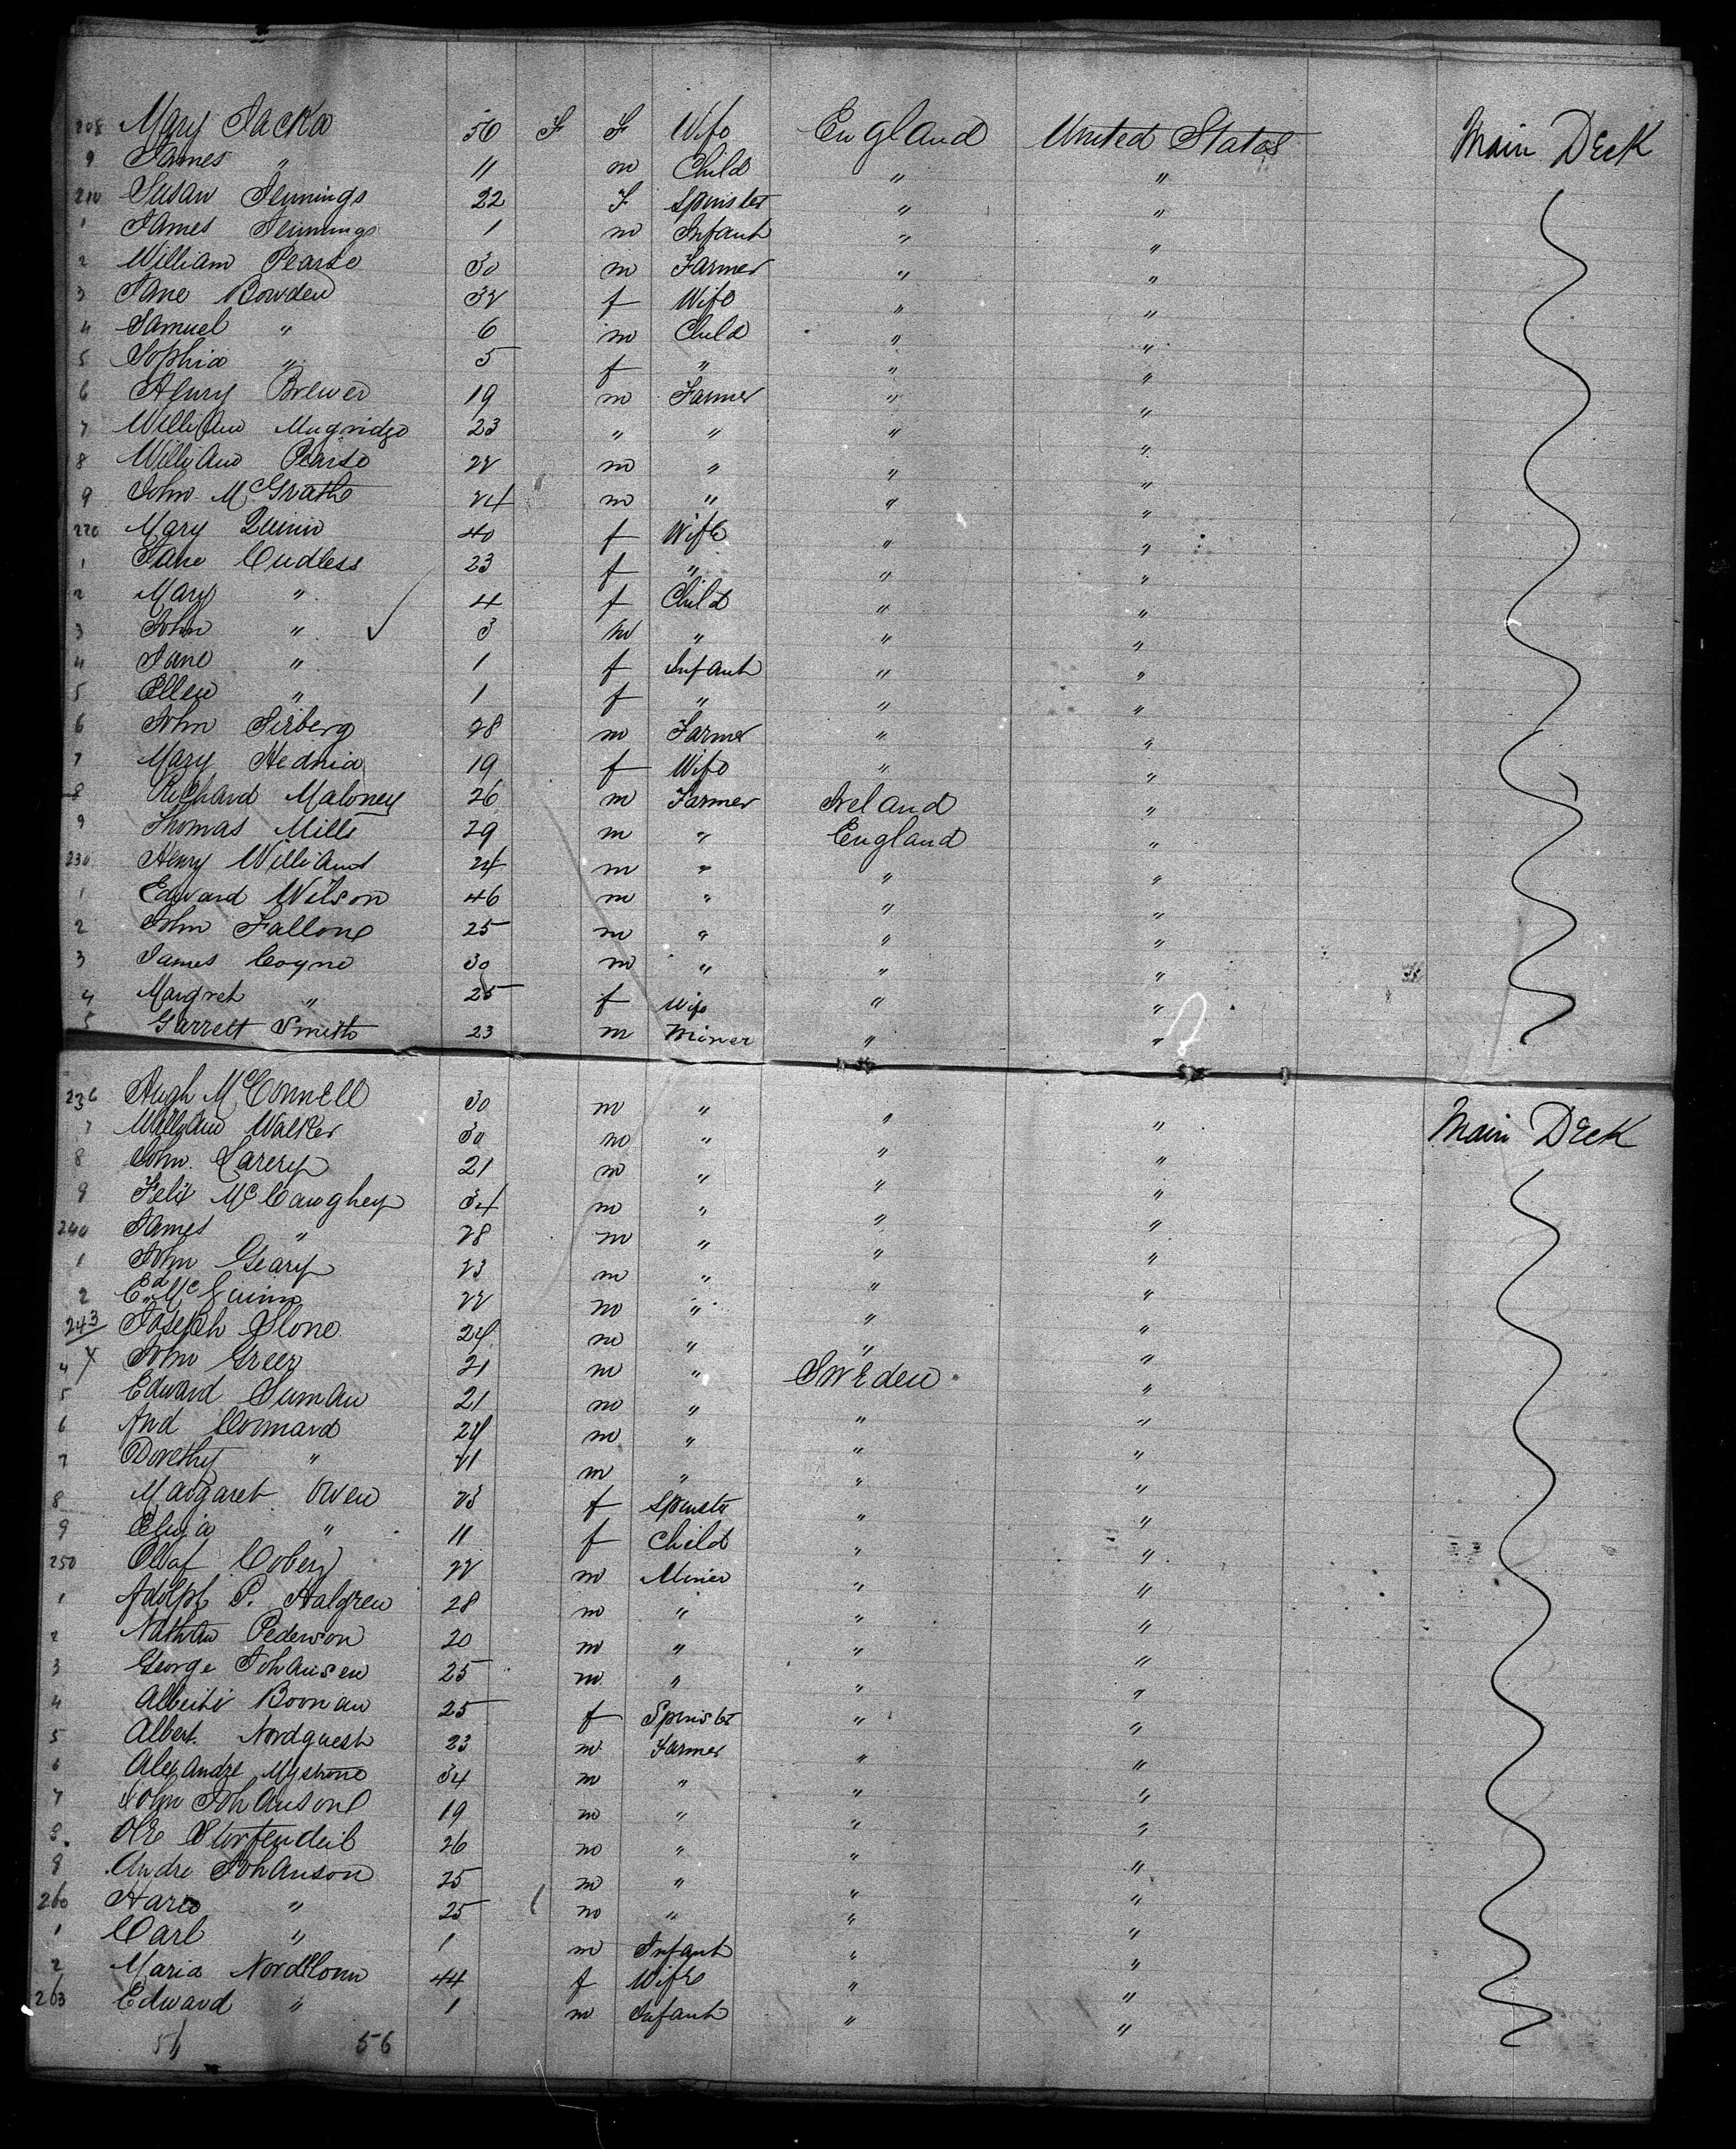 208 Mary Jacka 50 F F Wife England United States Main Deck
9 James " 11 m Child " "
210 Susan Jennings 22 F Spinster " "
1 James Jennings 1 m Infant " "
2 William Pearse 30 m Farmer " "
3 Jane Bowden 32 f Wife " "
4 Samuel " 6 m Child " "
5 Sophia " 5 f " " "
6 Henry Brewer 19 m Farmer " "
7 William Mugridge 23 " " " "
8 William Pearse 22 m " " "
9 John McGrath 24 m " " "
220 Mary Quinn 40 f Wife " "
1 Jane Cudless 23 f " " "
2 Mary " 4 f Child " "
3 John " 3 m " " "
4 Jane " 1 f Infant " "
5 Ellen " 1 f " " "
6 John Sirberg 28 m Farmer " "
7 Mary Hednia 19 f Wife " "
8 Richard Maloney 26 m Farmer Ireland "
9 Thomas Mills 29 m " England "
230 Henry Williams 24 m " " "
1 Edward Wilson 46 m " " "
2 John Fallone 25 m " " "
3 James Coyne 30 m " " "
4 Margret " 25 f Wife " "
5 Garrett Smith 23 m Miner " "
236 Hugh McConnell 30 m " " " Main Deck
7 William Walker 30 m " " "
8 John Larery 21 m " " "
9 Felix McCaughey 34 m " " "
240 James " 28 m " " "
1 John Geary 23 m " " "
2 Ed McGuinn 22 m " " "
243 Joseph Slone 24 m " " "
4 John Greer 21 m " Sweden "
5 Edward Suman 21 m " " "
6 And Connard 24 m " " "
7 Dorethy " 21 m " " "
8 Margaret Owen 23 f Spinster " "
9 Eliza " 11 f Child " "
250 Olaf Coberg 22 m Miner " "
1 Adolph P. Halgren 28 m " " "
2 Nathan Pederson 20 m " " "
3 George Johansen 25 m " " "
4 Boonian 25 f Spinster " "
5 Albert Nordquest 23 m Farmer " "
6 Alexandre 34 m " " "
7 John Johansone 19 m " " "
8 Ole 26 m " " "
9 Andre Johanson 25 m " " "
260 " 25 m " " "
1 Carl " 1 m Infant " "
2 Maria Nordlonn 44 f Wife " "
263 Edward " 1 m Infant " "
56